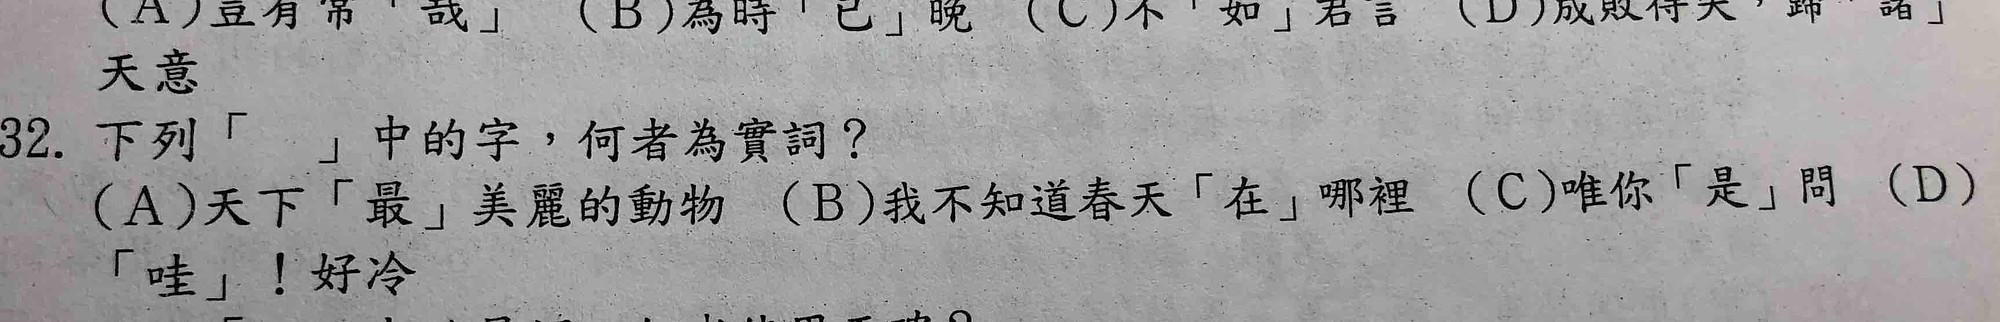 (A)豈有常「哉」 (B)為時「已」晚 (C)不「如」君言 (D)成敗得失，歸「諸」
天意
32. 下列「　」中的字，何者為實詞？
(A)天下「最」美麗的動物 (B)我不知道春天「在」哪裡 (C)唯你「是」問 (D)
「哇」！好冷